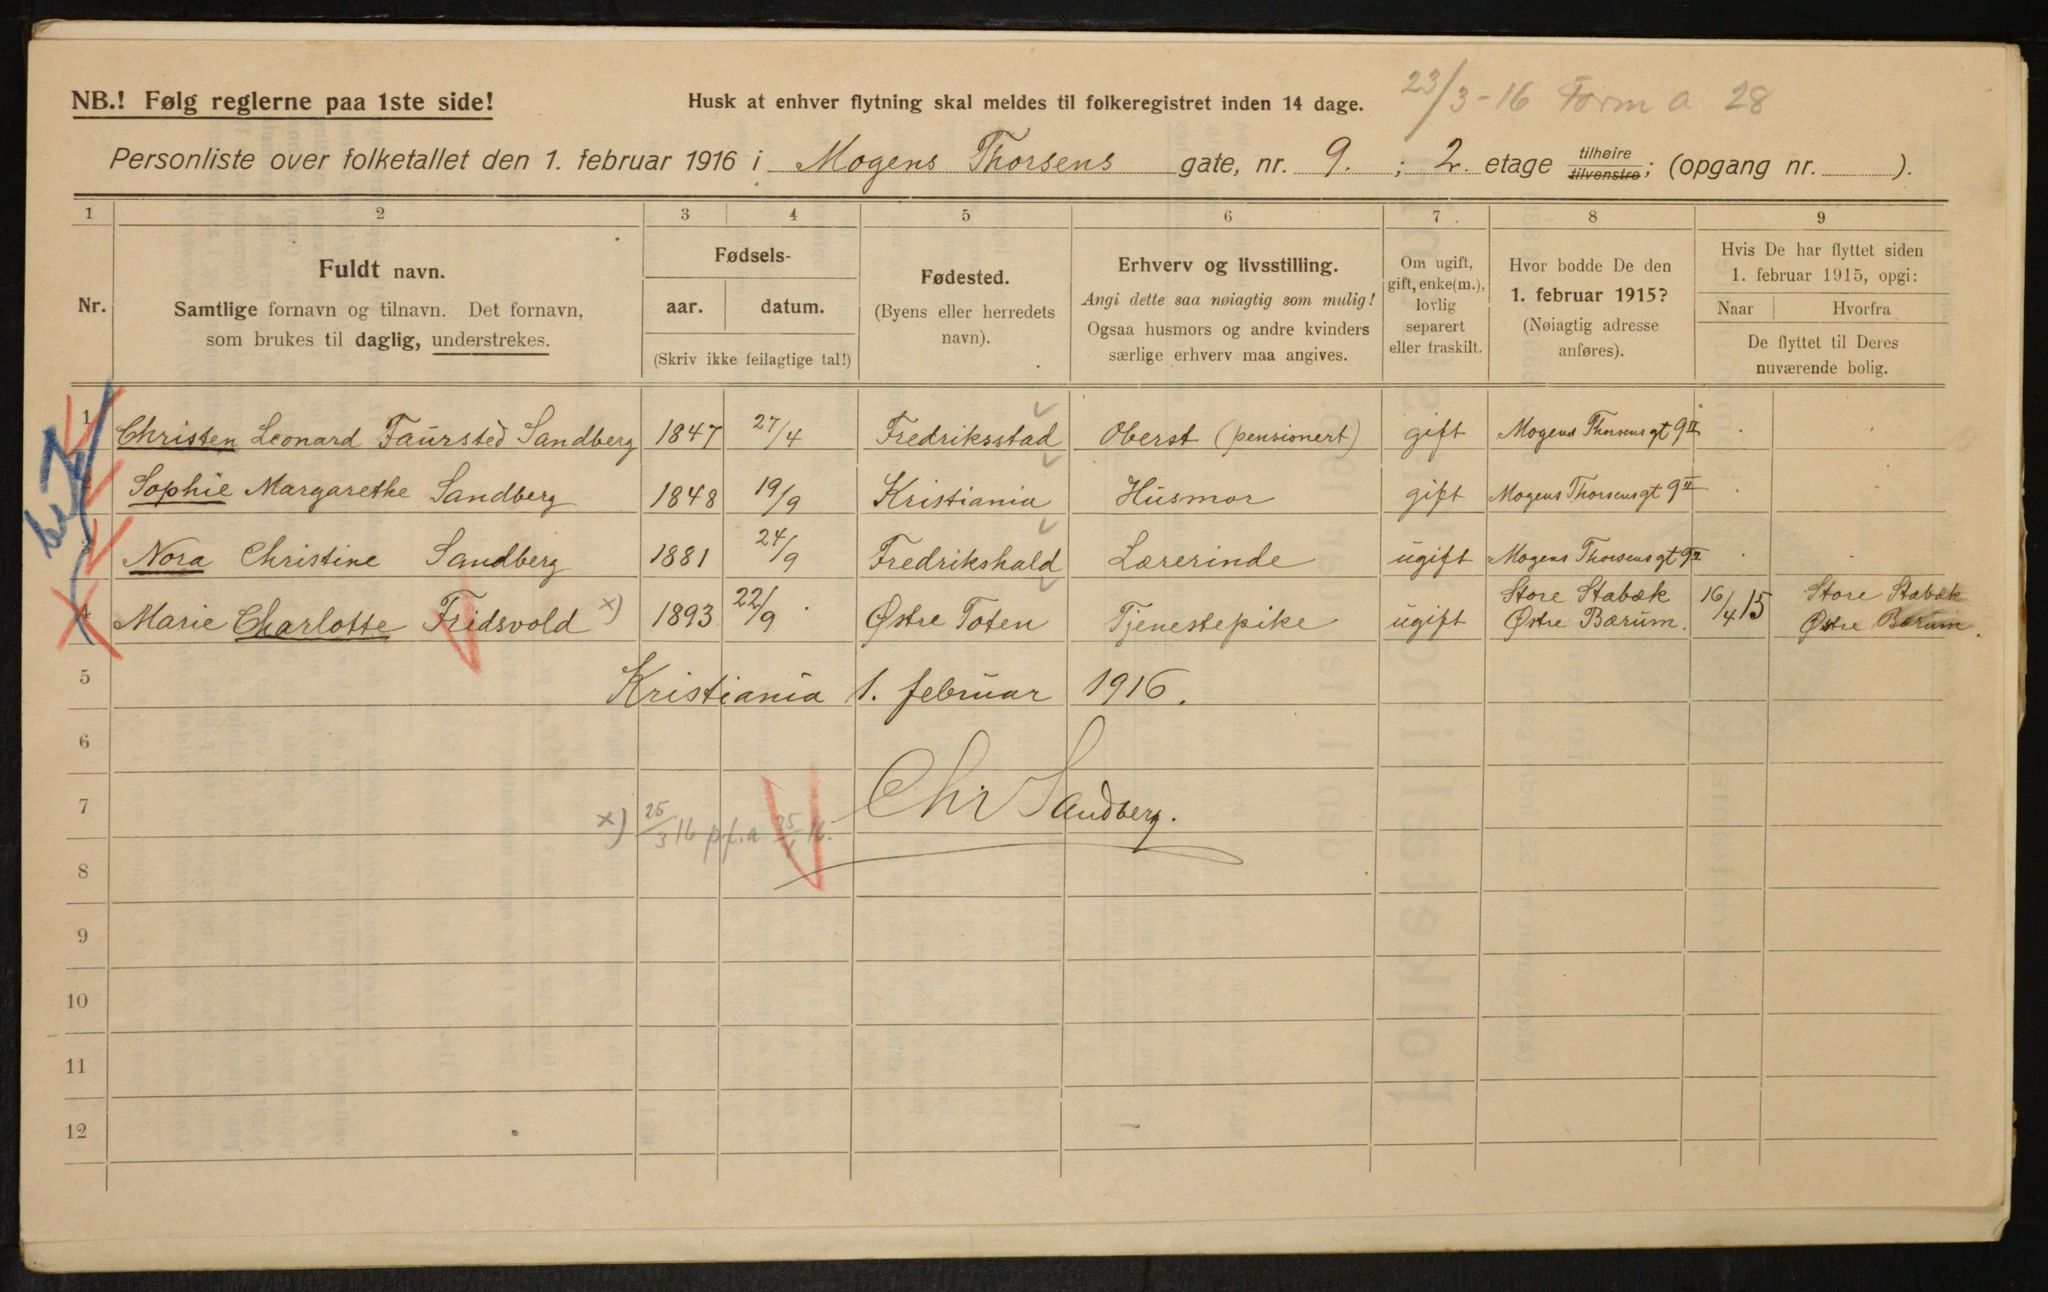 23/3-16 Form a 28
NB.! Følg reglerne paa 1ste side! Husk at enhver flytning skal meldes til folkeregistret inden 14 dage.
Personliste over folketallet den 1. februar 1916 i Mogens Thorsens gate, nr. 9. ; 2. etage tilhøire tilvenstre; (opgang nr. ).
1 2 3 4 5 6 7 8 9
Nr.
Fuldt navn.
Samtlige fornavn og tilnavn. Det fornavn,
som brukes til daglig, understrekes.
Fødsels-
aar. datum.
(Skriv ikke feilagtige tal!)
Fødested.
(Byens eller herredets
navn).
Erhverv og livsstilling.
Angi dette saa nøiagtig som mulig!
Ogsaa husmors og andre kvinders
særlige erhverv maa angives.
Om ugift,
gift, enke(m.),
lovlig
separert
eller fraskilt.
Hvor bodde De den
1. februar 1915?
(Nøiagtig adresse
anføres).
Hvis De har flyttet siden
1. februar 1915, opgi:
Naar Hvorfra
De flyttet til Deres
nuværende bolig.
1 Christen Leonard Faursted Sandberg 1847 27/4 Fredriksstad Oberst (pensionert) gift Mogens Thorsens gt 9 II
2 Sophie Margarethe Sandberg 1848 19/9 Kristiania Husmor gift Mogens Thorsens gt 9 II
3 Nora Christine Sandberg 1881 24/9 Fredrikshald Lærerinde ugift Mogens Thorsens gt 9 II
4 Marie Charlotte Fridsvold x) 1893 22/9 Østre Toten Tjenestepike ugift Store Stabæk Østre Bærum. 16/4 15 Store Stabæk Østre Bærum.
5 Kristiania 1. februar 1916.
6
7 Chr Sandberg.
x) 25/3 16 p.f.a
8
9
10
11
12